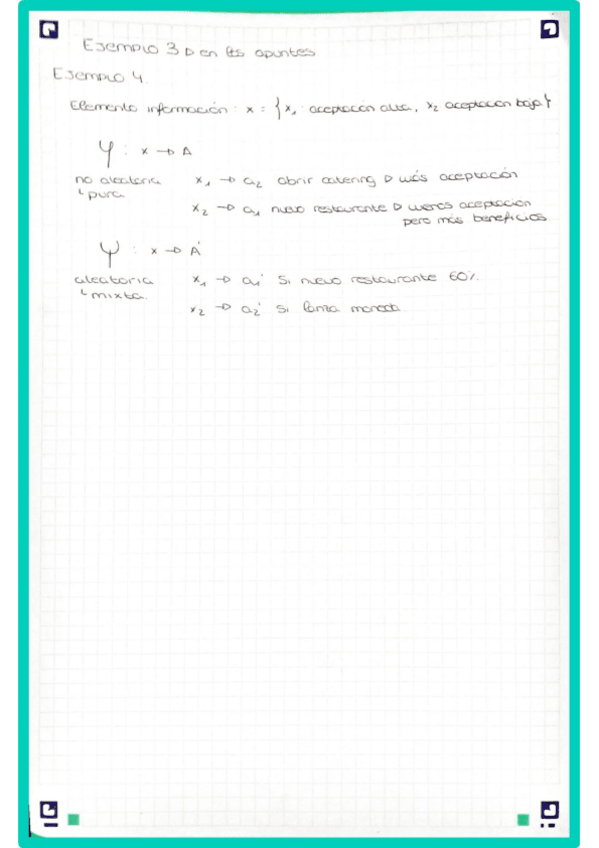 Ejemplo 3 → en los apuntes.
Ejemplo 4.
Elemento información : x = { x₁ : aceptación alta, x₂ aceptación baja }
φ : x → A
no aleatoria x₁ → a₂ abrir catering → más aceptación
↳ pura x₂ → a₁ nuevo restaurante → menos aceptación
pero más beneficios.
ψ : x → A'
aleatoria x₁ → a₁' si nuevo restaurante 60%.
↳ mixta. x₂ → a₂' si lanza moneda.